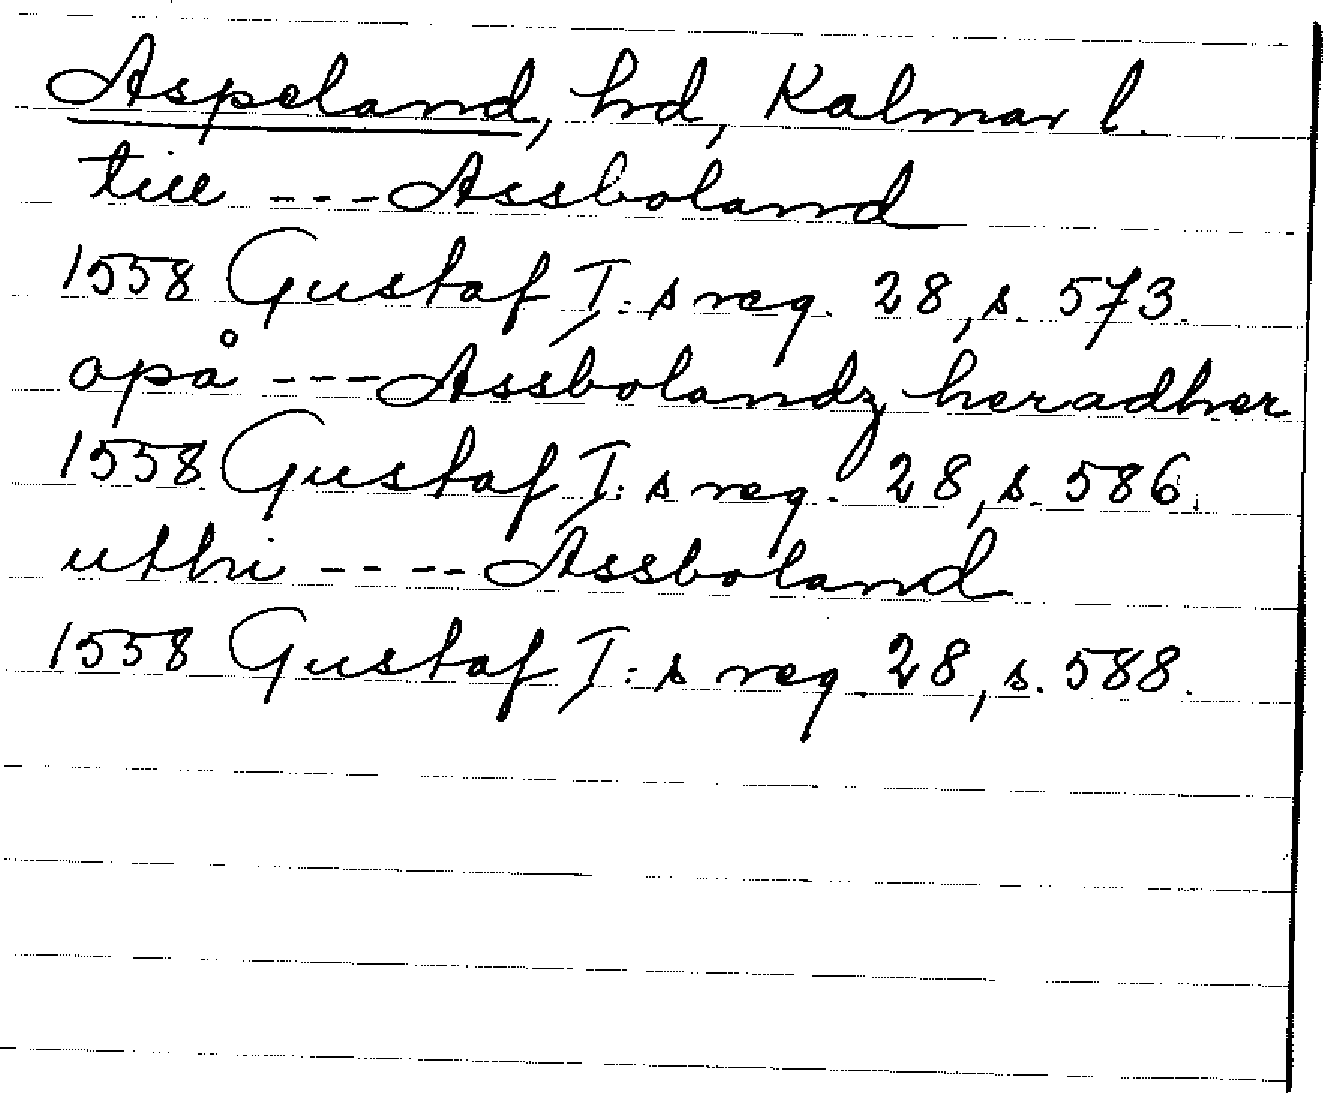 Aspeland, hd, Kalmar l.
till --- Assboland
1558 Gustaf I:s reg. 28, s. 573.
opå --- Assbolandz heradher
1558 Gustaf I:s reg. 28, s. 586.
uthi ---- Assboland
1558 Gustaf I:s reg. 28, s. 588.